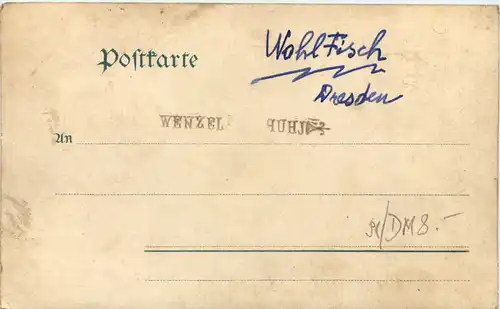 Postkarte
Wohl Fisch
Dresden
WENZEL
An
DM 8.-